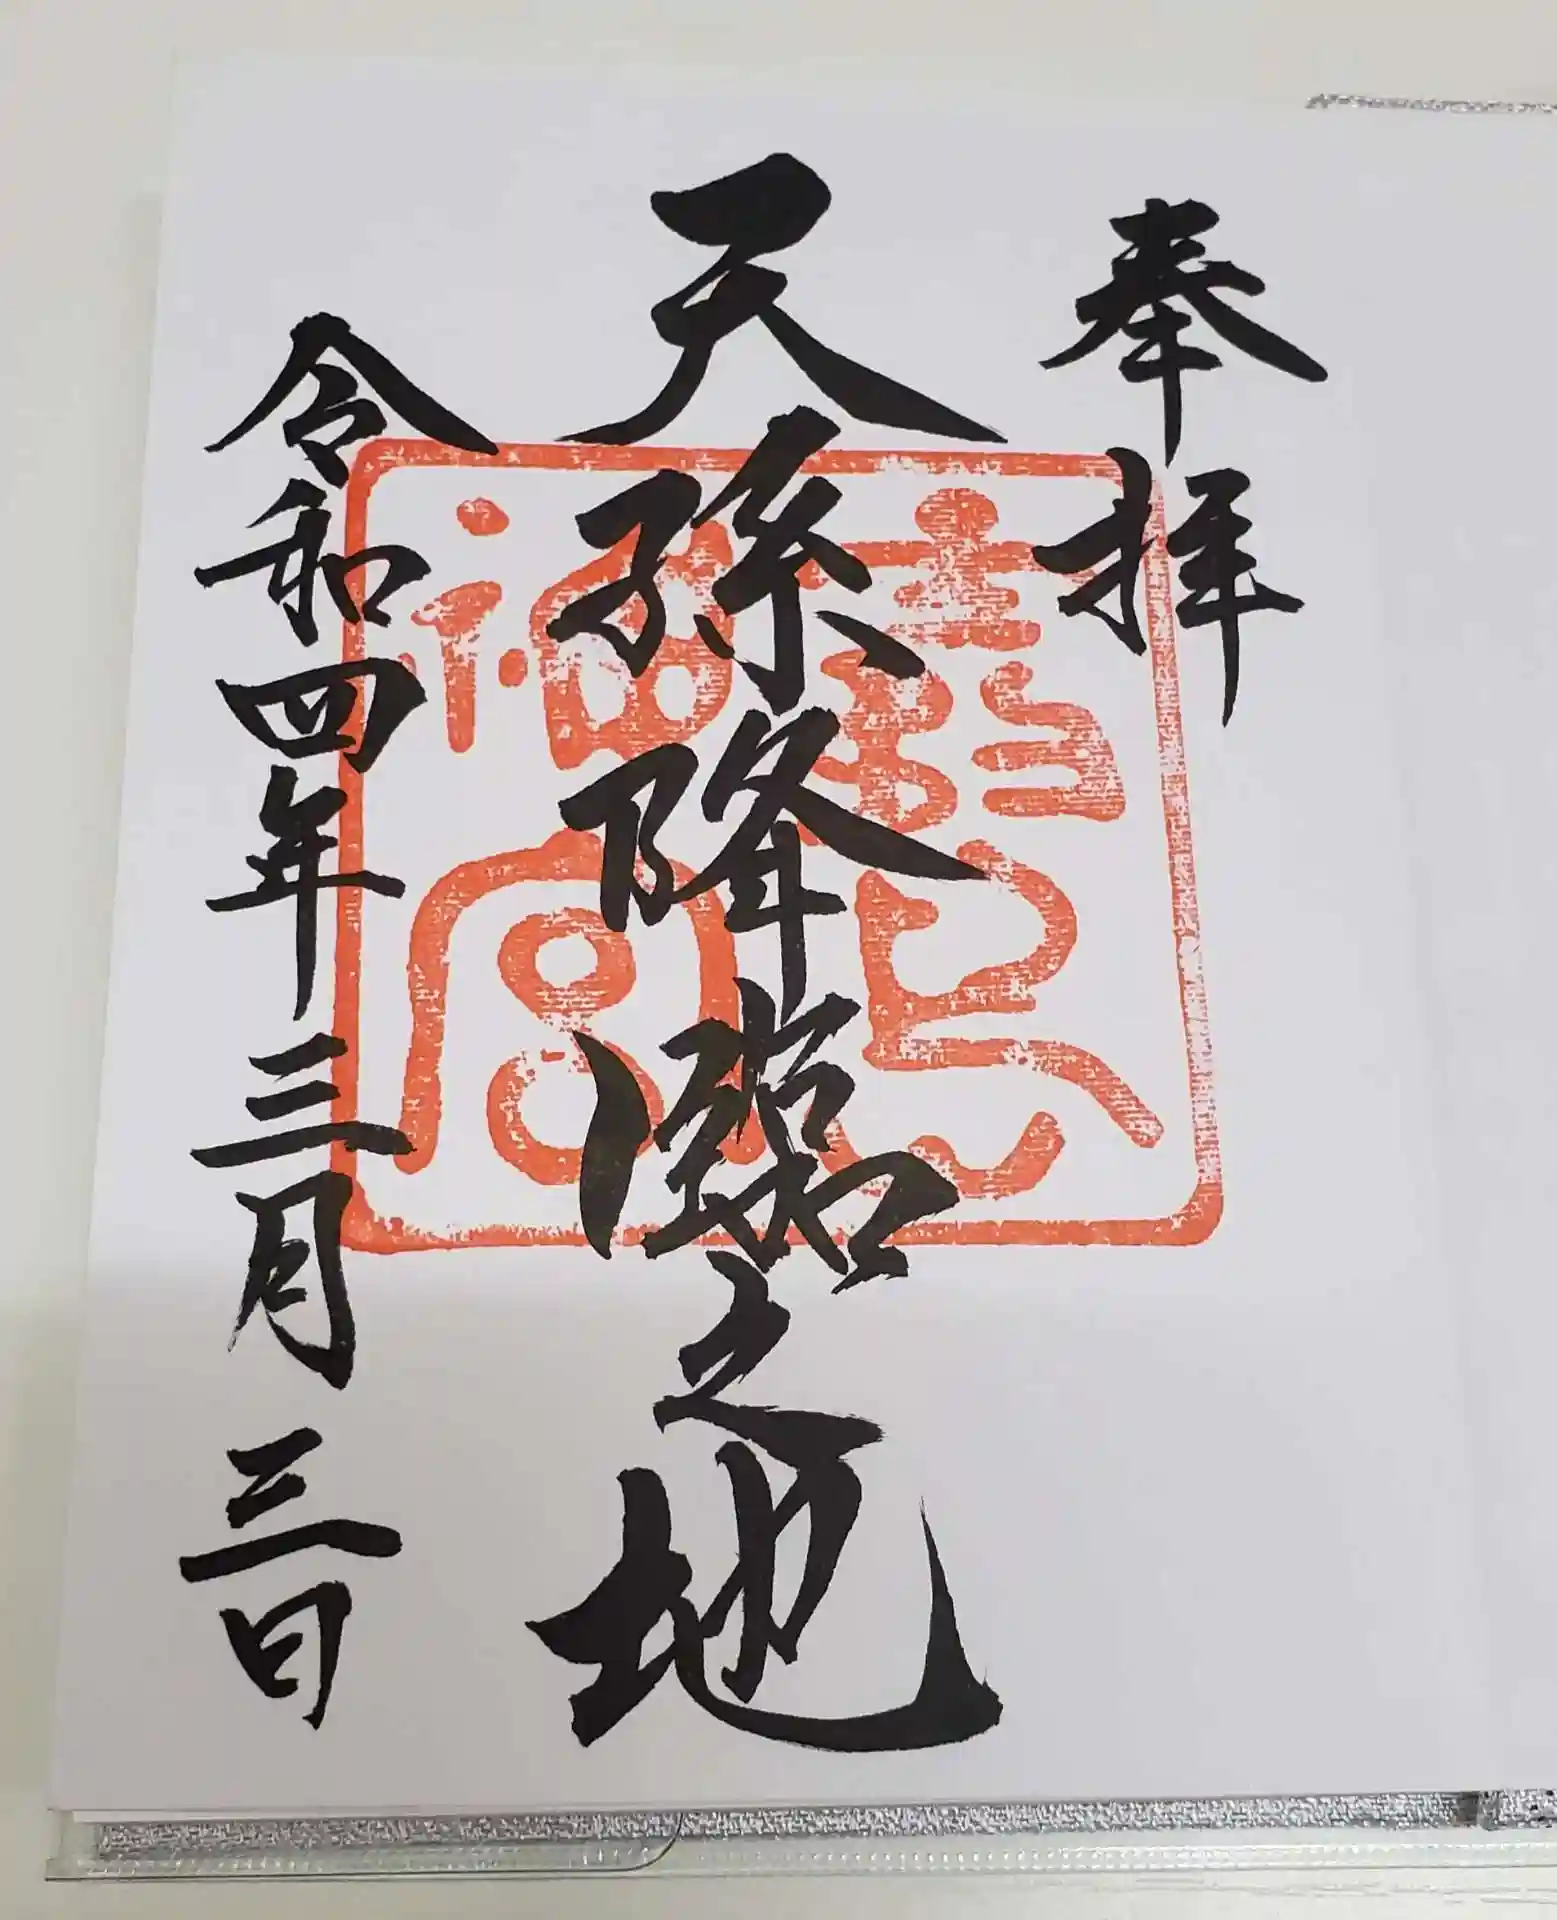 奉拝
天孫降臨之地
令和四年三月三日
霧島
神宮